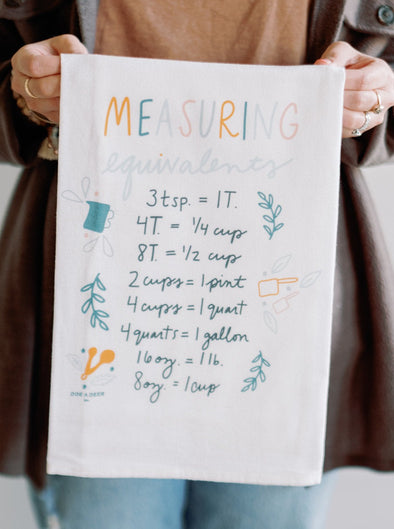 MEASURING
equivalents
3 tsp. = 1T.
4T. = 1/4 cup
8T. = 1/2 cup
2 cups = 1 pint
4 cups = 1 quart
4 quarts = 1 gallon
16 oz. = 1 lb.
8 oz. = 1 cup